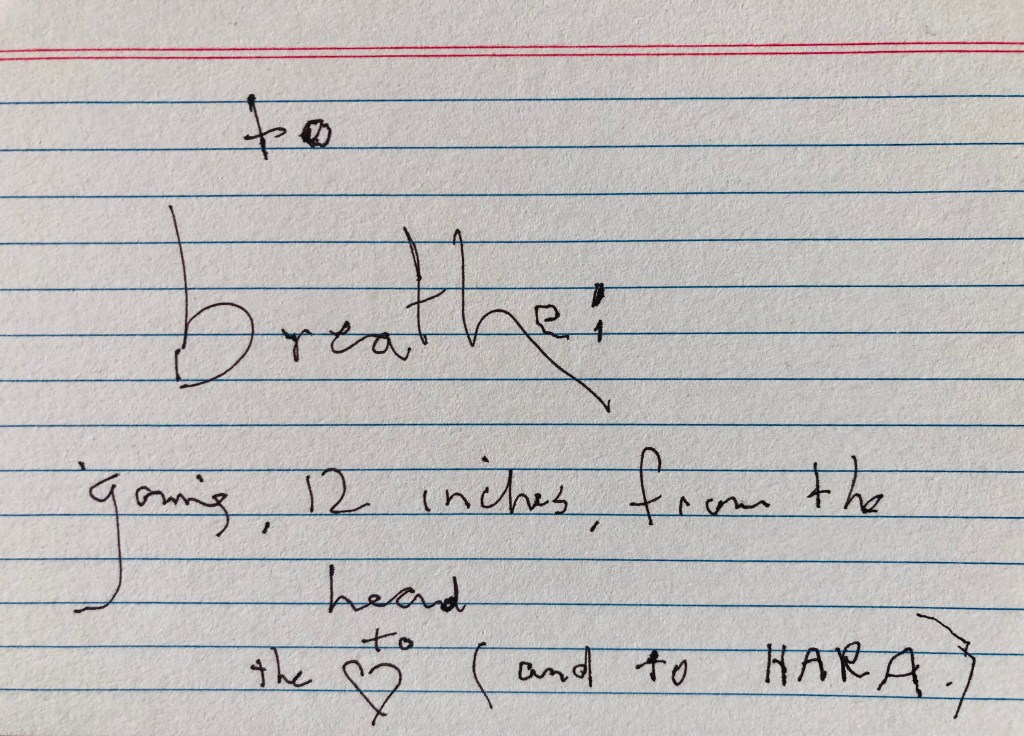 to
breathe!
going, 12 inches, from the
head
to
the ♡ (and to HARA.)